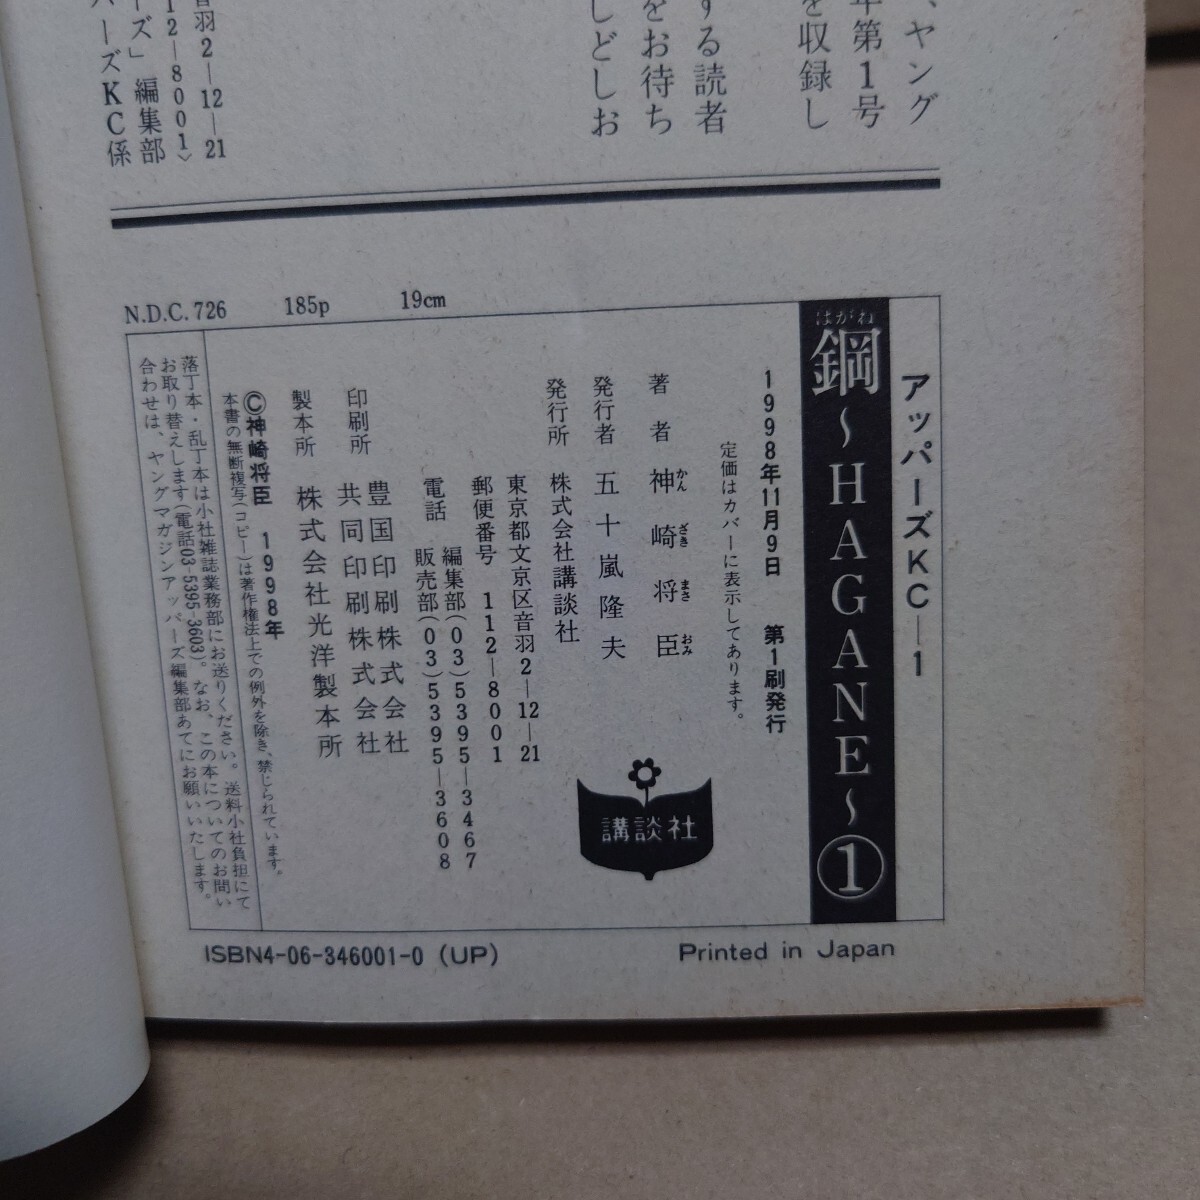 、ヤング
年第1号
を収録し
する読者
をお待ち
しどしお
音羽2―12―21
12―8001〉
ーズ」編集部
パーズKC係
N.D.C.726 185p 19cm
アッパーズKC―1
はがね
鋼～HAGANE～①
1998年11月9日 第1刷発行
定価はカバーに表示してあります。
著者 神崎将臣
かん ざき まさ おみ
発行者 五十嵐隆夫
発行所 株式会社講談社
東京都文京区音羽2―12―21
郵便番号 112―8001
電話 編集部(03)5395―3467
販売部(03)5395―3608
印刷所 豊国印刷株式会社
共同印刷株式会社
製本所 株式会社光洋製本所
講談社
©神崎将臣 1998年
本書の無断複写(コピー)は著作権法上での例外を除き、禁じられています。
落丁本・乱丁本は小社雑誌業務部にお送りください。送料小社負担にて
お取り替えします(電話03-5395-3603)。なお、この本についてのお問い
合わせは、ヤングマガジンアッパーズ編集部あてにお願いいたします。
ISBN4-06-346001-0 (UP)
Printed in Japan